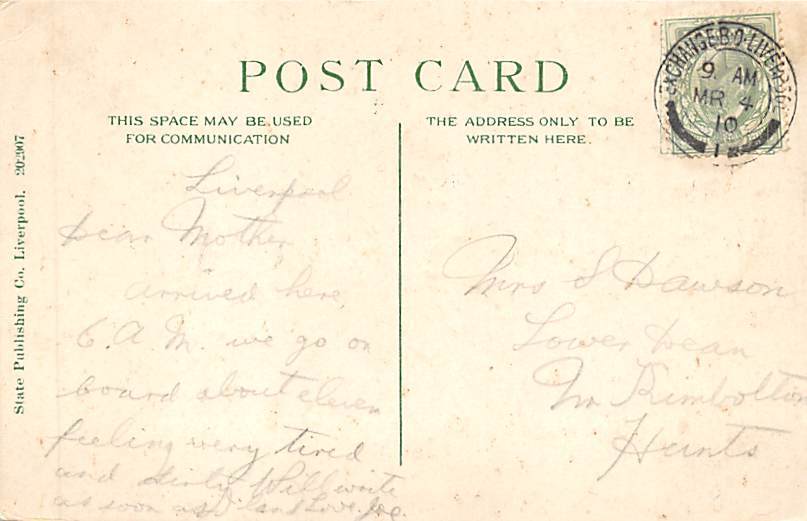 POST CARD
THIS SPACE MAY BE USED
FOR COMMUNICATION
THE ADDRESS ONLY TO BE
WRITTEN HERE.
EXCHANGE B.O. LIVERPOOL
9. AM
MR 4
10
State Publishing Co. Liverpool. 202907
Liverpool
Dear Mother
arrived here
6. A. M. we go on
board about eleven
feeling very tired
and dirty Will write
as soon as I can Love Joe.
Mrs S Dawson
Lower Dean
Nr Kimbolton
Hunts